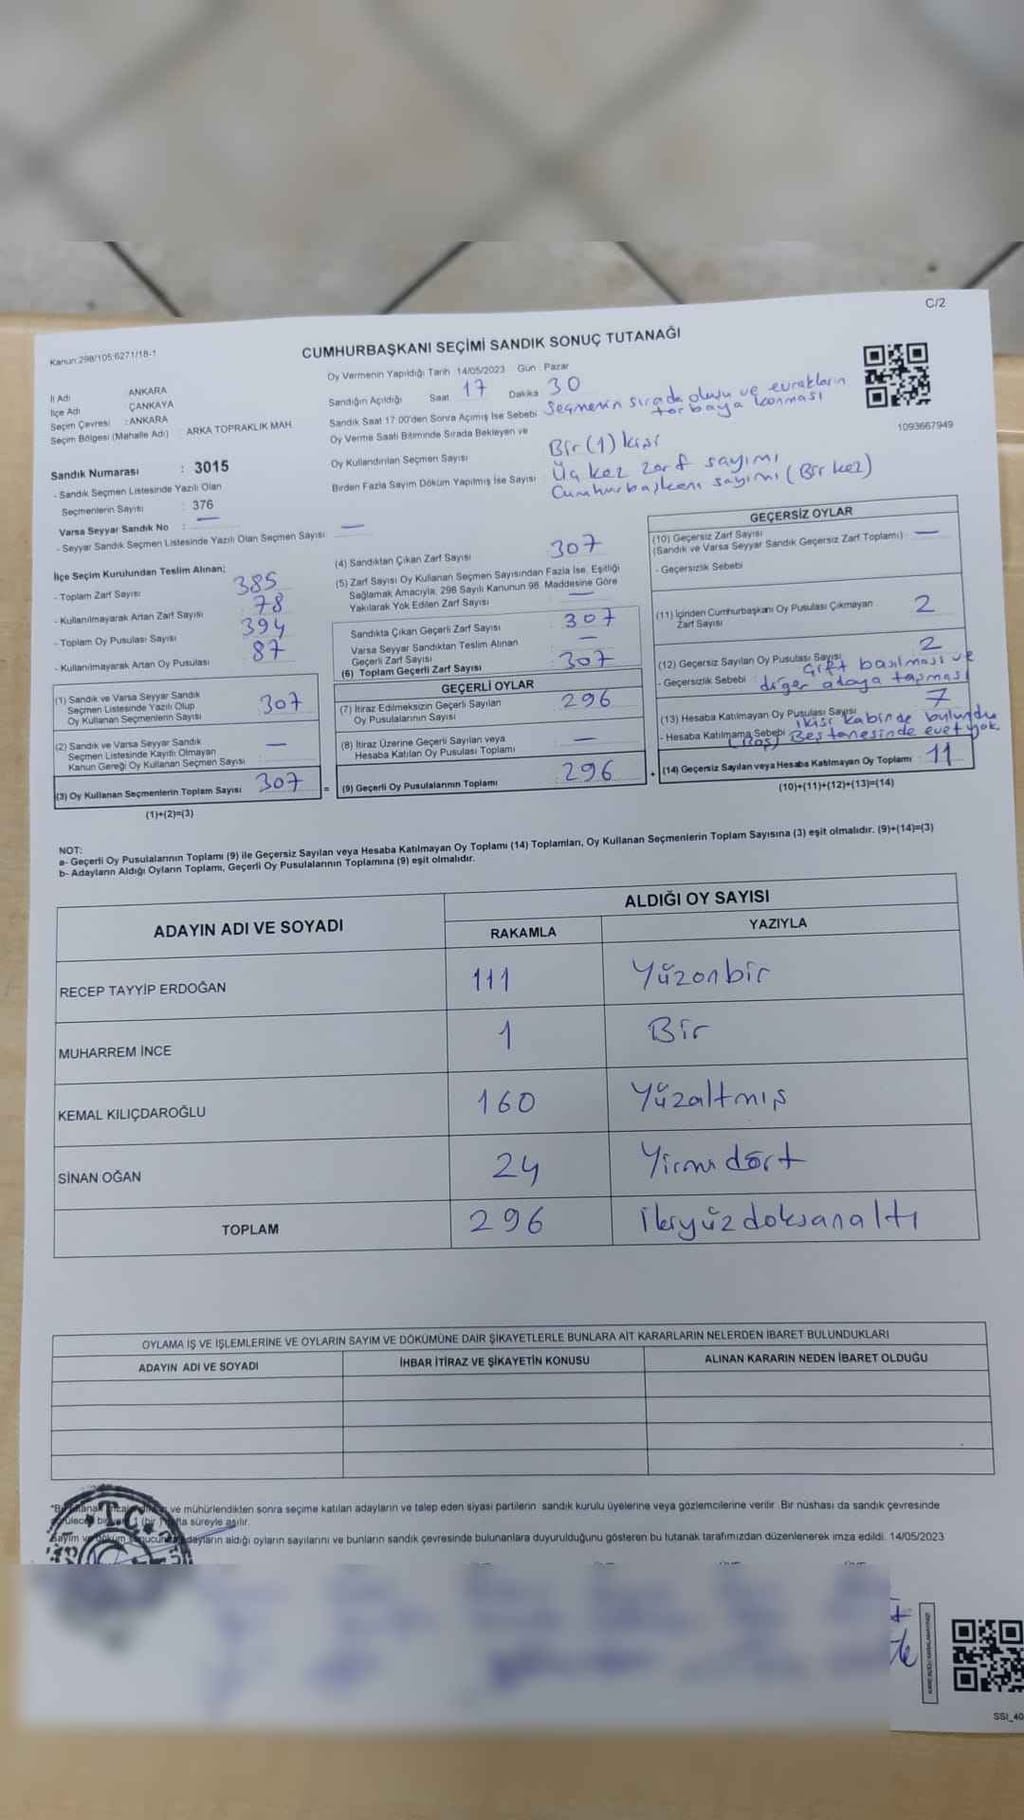 C/2
Kanun:298/105;6271/18-1
CUMHURBAŞKANI SEÇİMİ SANDIK SONUÇ TUTANAĞI
İl Adı ANKARA
İlçe Adı ÇANKAYA
Seçim Çevresi : ANKARA
Seçim Bölgesi (Mahalle Adı) : ARKA TOPRAKLIK MAH.
Oy Vermenin Yapıldığı Tarih 14/05/2023 Gün Pazar
Sandığın Açıldığı Saat 17 Dakika 30
Sandık Saat 17:00'den Sonra Açımış İse Sebebi Seçmenin sırada oluşu ve evrakların torbaya konması
Oy Verme Saati Bitiminde Sırada Bekleyen ve
Oy Kullandırılan Seçmen Sayısı Bir (1) kişi
Birden Fazla Sayım Döküm Yapılmış İse Sayısı Üç kez zarf sayımı
Cumhurbaşkanı sayımı (Bir kez)
1093667949
Sandık Numarası : 3015
- Sandık Seçmen Listesinde Yazılı Olan
Seçmenlerin Sayısı : 376
Varsa Seyyar Sandık No : —
- Seyyar Sandık Seçmen Listesinde Yazılı Olan Seçmen Sayısı —
İlçe Seçim Kurulundan Teslim Alınan;
- Toplam Zarf Sayısı 385
- Kullanılmayarak Artan Zarf Sayısı 78
- Toplam Oy Pusulası Sayısı 394
- Kullanılmayarak Artan Oy Pusulası 87
(1) Sandık ve Varsa Seyyar Sandık
Seçmen Listesinde Yazılı Olup
Oy Kullanan Seçmenlerin Sayısı 307
(2) Sandık ve Varsa Seyyar Sandık
Seçmen Listesinde Kayıtlı Olmayan
Kanun Gereği Oy Kullanan Seçmen Sayısı —
(3) Oy Kullanan Seçmenlerin Toplam Sayısı 307
(1)+(2)=(3)
(4) Sandıktan Çıkan Zarf Sayısı 307
(5) Zarf Sayısı Oy Kullanan Seçmen Sayısından Fazla İse, Eşitliği
Sağlamak Amacıyla, 298 Sayılı Kanunun 98. Maddesine Göre
Yakılarak Yok Edilen Zarf Sayısı —
Sandıkta Çıkan Geçerli Zarf Sayısı 307
Varsa Seyyar Sandıktan Teslim Alınan
Geçerli Zarf Sayısı —
(6) Toplam Geçerli Zarf Sayısı 307
GEÇERLİ OYLAR
(7) İtiraz Edilmeksizin Geçerli Sayılan
Oy Pusulalarının Sayısı 296
(8) İtiraz Üzerine Geçerli Sayılan veya
Hesaba Katılan Oy Pusulası Toplamı —
= (9) Geçerli Oy Pusulalarının Toplamı 296 +
GEÇERSİZ OYLAR
(10) Geçersiz Zarf Sayısı
(Sandık ve Varsa Seyyar Sandık Geçersiz Zarf Toplamı) —
- Geçersizlik Sebebi
(11) İçinden Cumhurbaşkanı Oy Pusulası Çıkmayan
Zarf Sayısı 2
(12) Geçersiz Sayılan Oy Pusulası Sayısı 2
- Geçersizlik Sebebi Çift basılması ve
diğer adaya taşması
(13) Hesaba Katılmayan Oy Pusulası Sayısı 7
- Hesaba Katılmama Sebebi ikisi kabinde bulundu
(Boş) Beş tanesinde evet yok.
(14) Geçersiz Sayılan veya Hesaba Katılmayan Oy Toplamı 11
(10)+(11)+(12)+(13)=(14)
NOT:
a- Geçerli Oy Pusulalarının Toplamı (9) ile Geçersiz Sayılan veya Hesaba Katılmayan Oy Toplamı (14) Toplamları, Oy Kullanan Seçmenlerin Toplam Sayısına (3) eşit olmalıdır. (9)+(14)=(3)
b- Adayların Aldığı Oyların Toplamı, Geçerli Oy Pusulalarının Toplamına (9) eşit olmalıdır.
ADAYIN ADI VE SOYADI ALDIĞI OY SAYISI
RAKAMLA YAZIYLA
RECEP TAYYİP ERDOĞAN 111 Yüzonbir
MUHARREM İNCE 1 Bir
KEMAL KILIÇDAROĞLU 160 Yüzaltmış
SİNAN OĞAN 24 Yirmi dört
TOPLAM 296 ikiyüzdoksanaltı
OYLAMA İŞ VE İŞLEMLERİNE VE OYLARIN SAYIM VE DÖKÜMÜNE DAİR ŞİKAYETLERLE BUNLARA AİT KARARLARIN NELERDEN İBARET BULUNDUKLARI
ADAYIN ADI VE SOYADI İHBAR İTİRAZ VE ŞİKAYETİN KONUSU ALINAN KARARIN NEDEN İBARET OLDUĞU
ve mühürlendikten sonra seçime katılan adayların ve talep eden siyasi partilerin sandık kurulu üyelerine veya gözlemcilerine verilir. Bir nüshası da sandık çevresinde
süreyle asılır.
adayların aldığı oyların sayılarını ve bunların sandık çevresinde bulunanlara duyurulduğunu gösteren bu tutanak tarafımızdan düzenlenerek imza edildi. 14/05/2023
T.C.
SSI_40